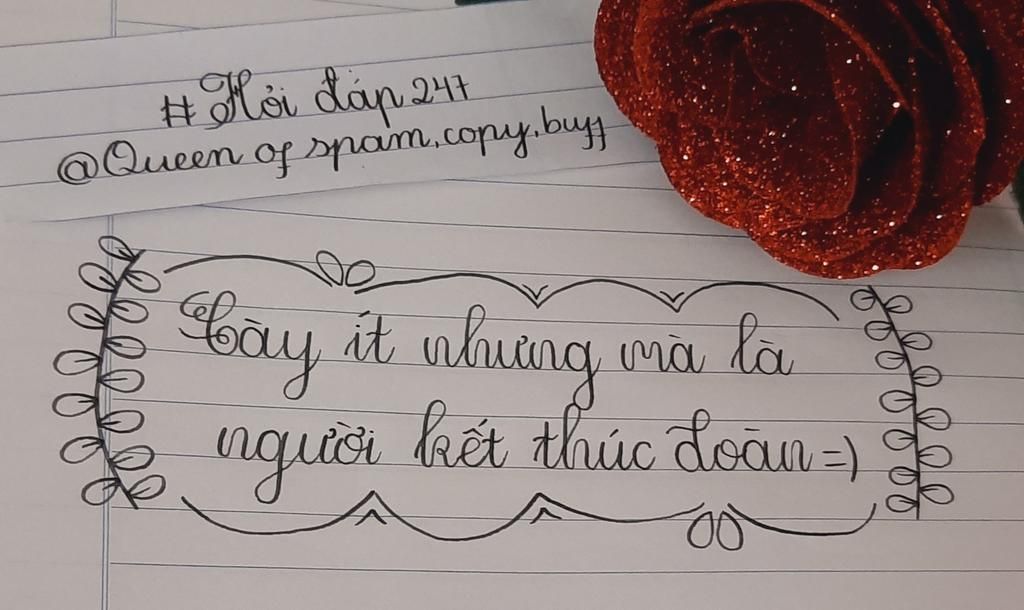 # Hỏi đáp 247
@Queen of spam, copy, buff
Cày ít nhưng mà là
người kết thúc đoàn =)